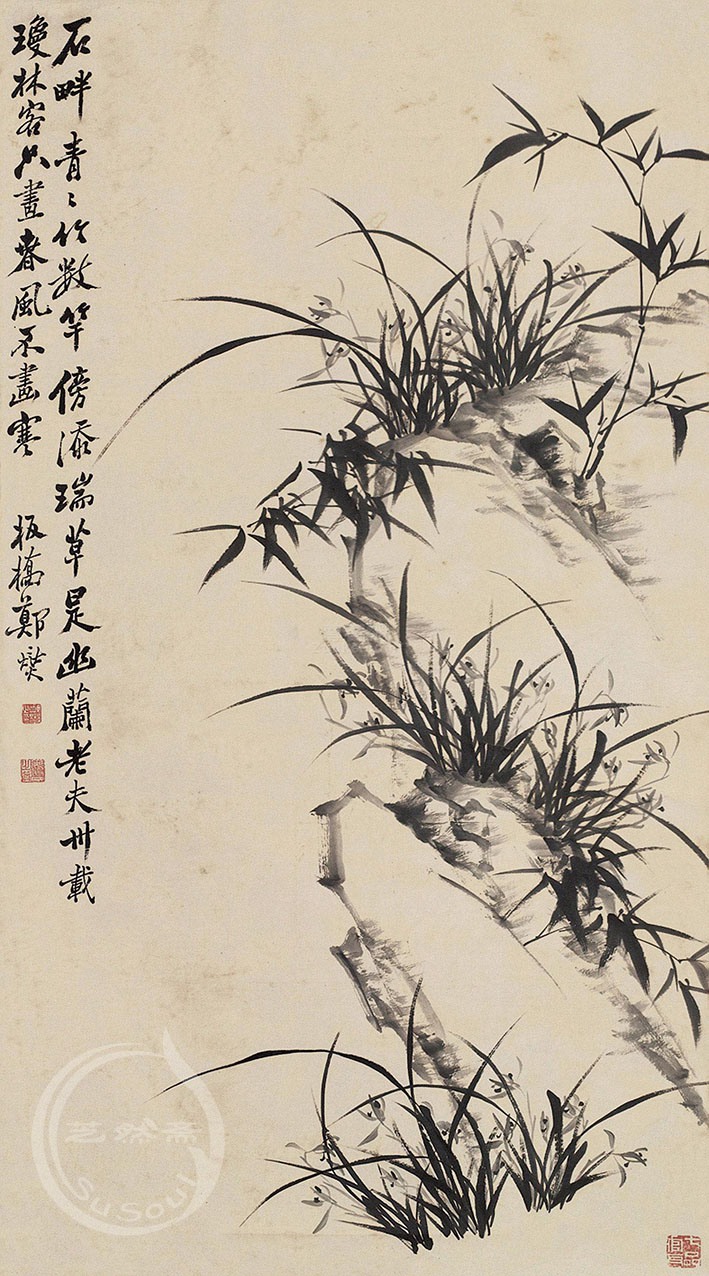 石畔青〻竹數竿傍添瑞草是幽蘭老夫卅載
瓊林客只畫春風不畫寒 板橋鄭燮
芝然斋
SuSoul